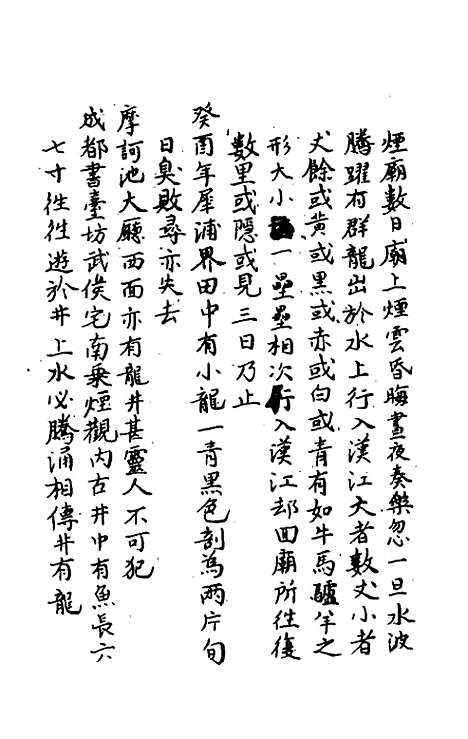 煙廟數日廟上煙雲昏晦晝夜奏樂忽一旦水波
騰躍有群龍出於水上行入漢江大者數丈小者
丈餘或黄或黑或赤或白或青有如牛馬驢羊之
形大小一壘壘相次行入漢江却回廟所往復
數里或隱或見三日乃止
癸酉年犀浦界田中有小龍一青黑色剖為兩片旬
日臭敗尋亦失去
摩訶池大廳西面亦有龍井甚靈人不可犯
成都書臺坊武侯宅南乗煙觀内古井中有魚長六
七寸往往遊於井上水必騰涌相傳井有龍